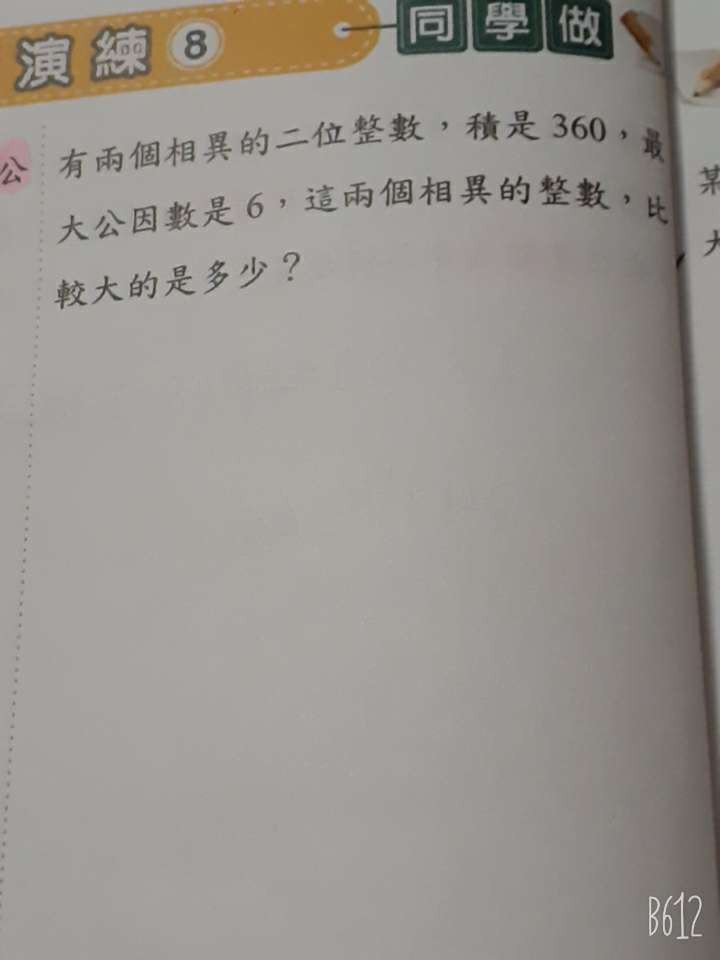 演練 8 同學做
公
有兩個相異的二位整數，積是 360，最
大公因數是 6，這兩個相異的整數，比
較大的是多少？
某
B612